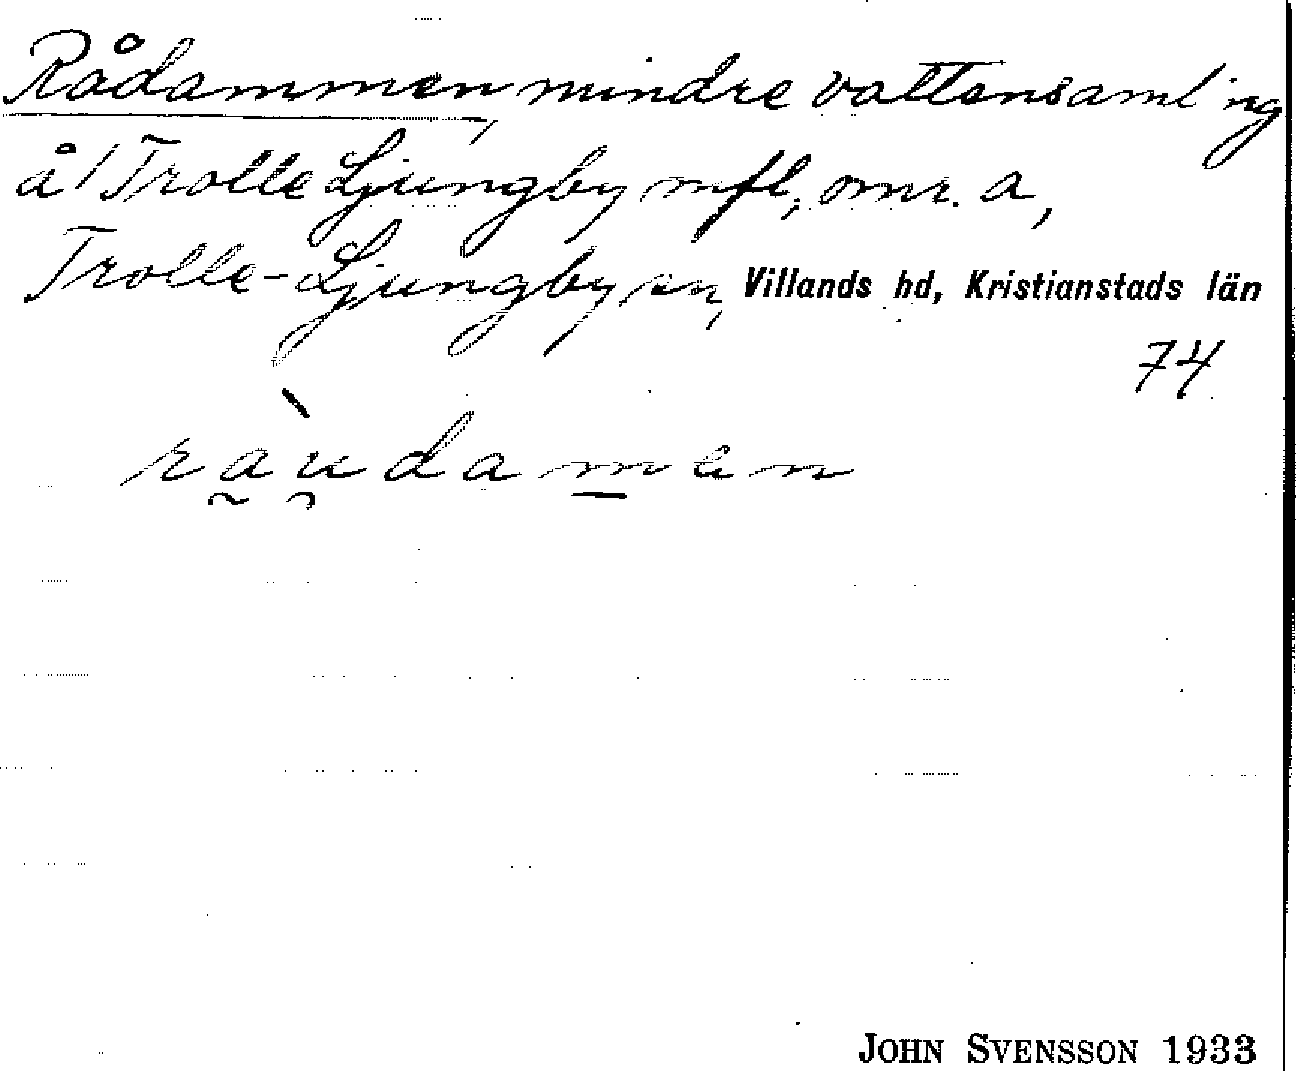 Rådammen, mindre vattensamling
å/Trolle Ljungby mfl, omr. a,
Trolle-Ljungby sn, Villands hd, Kristianstads län
74
ràudamen
JOHN SVENSSON 1933